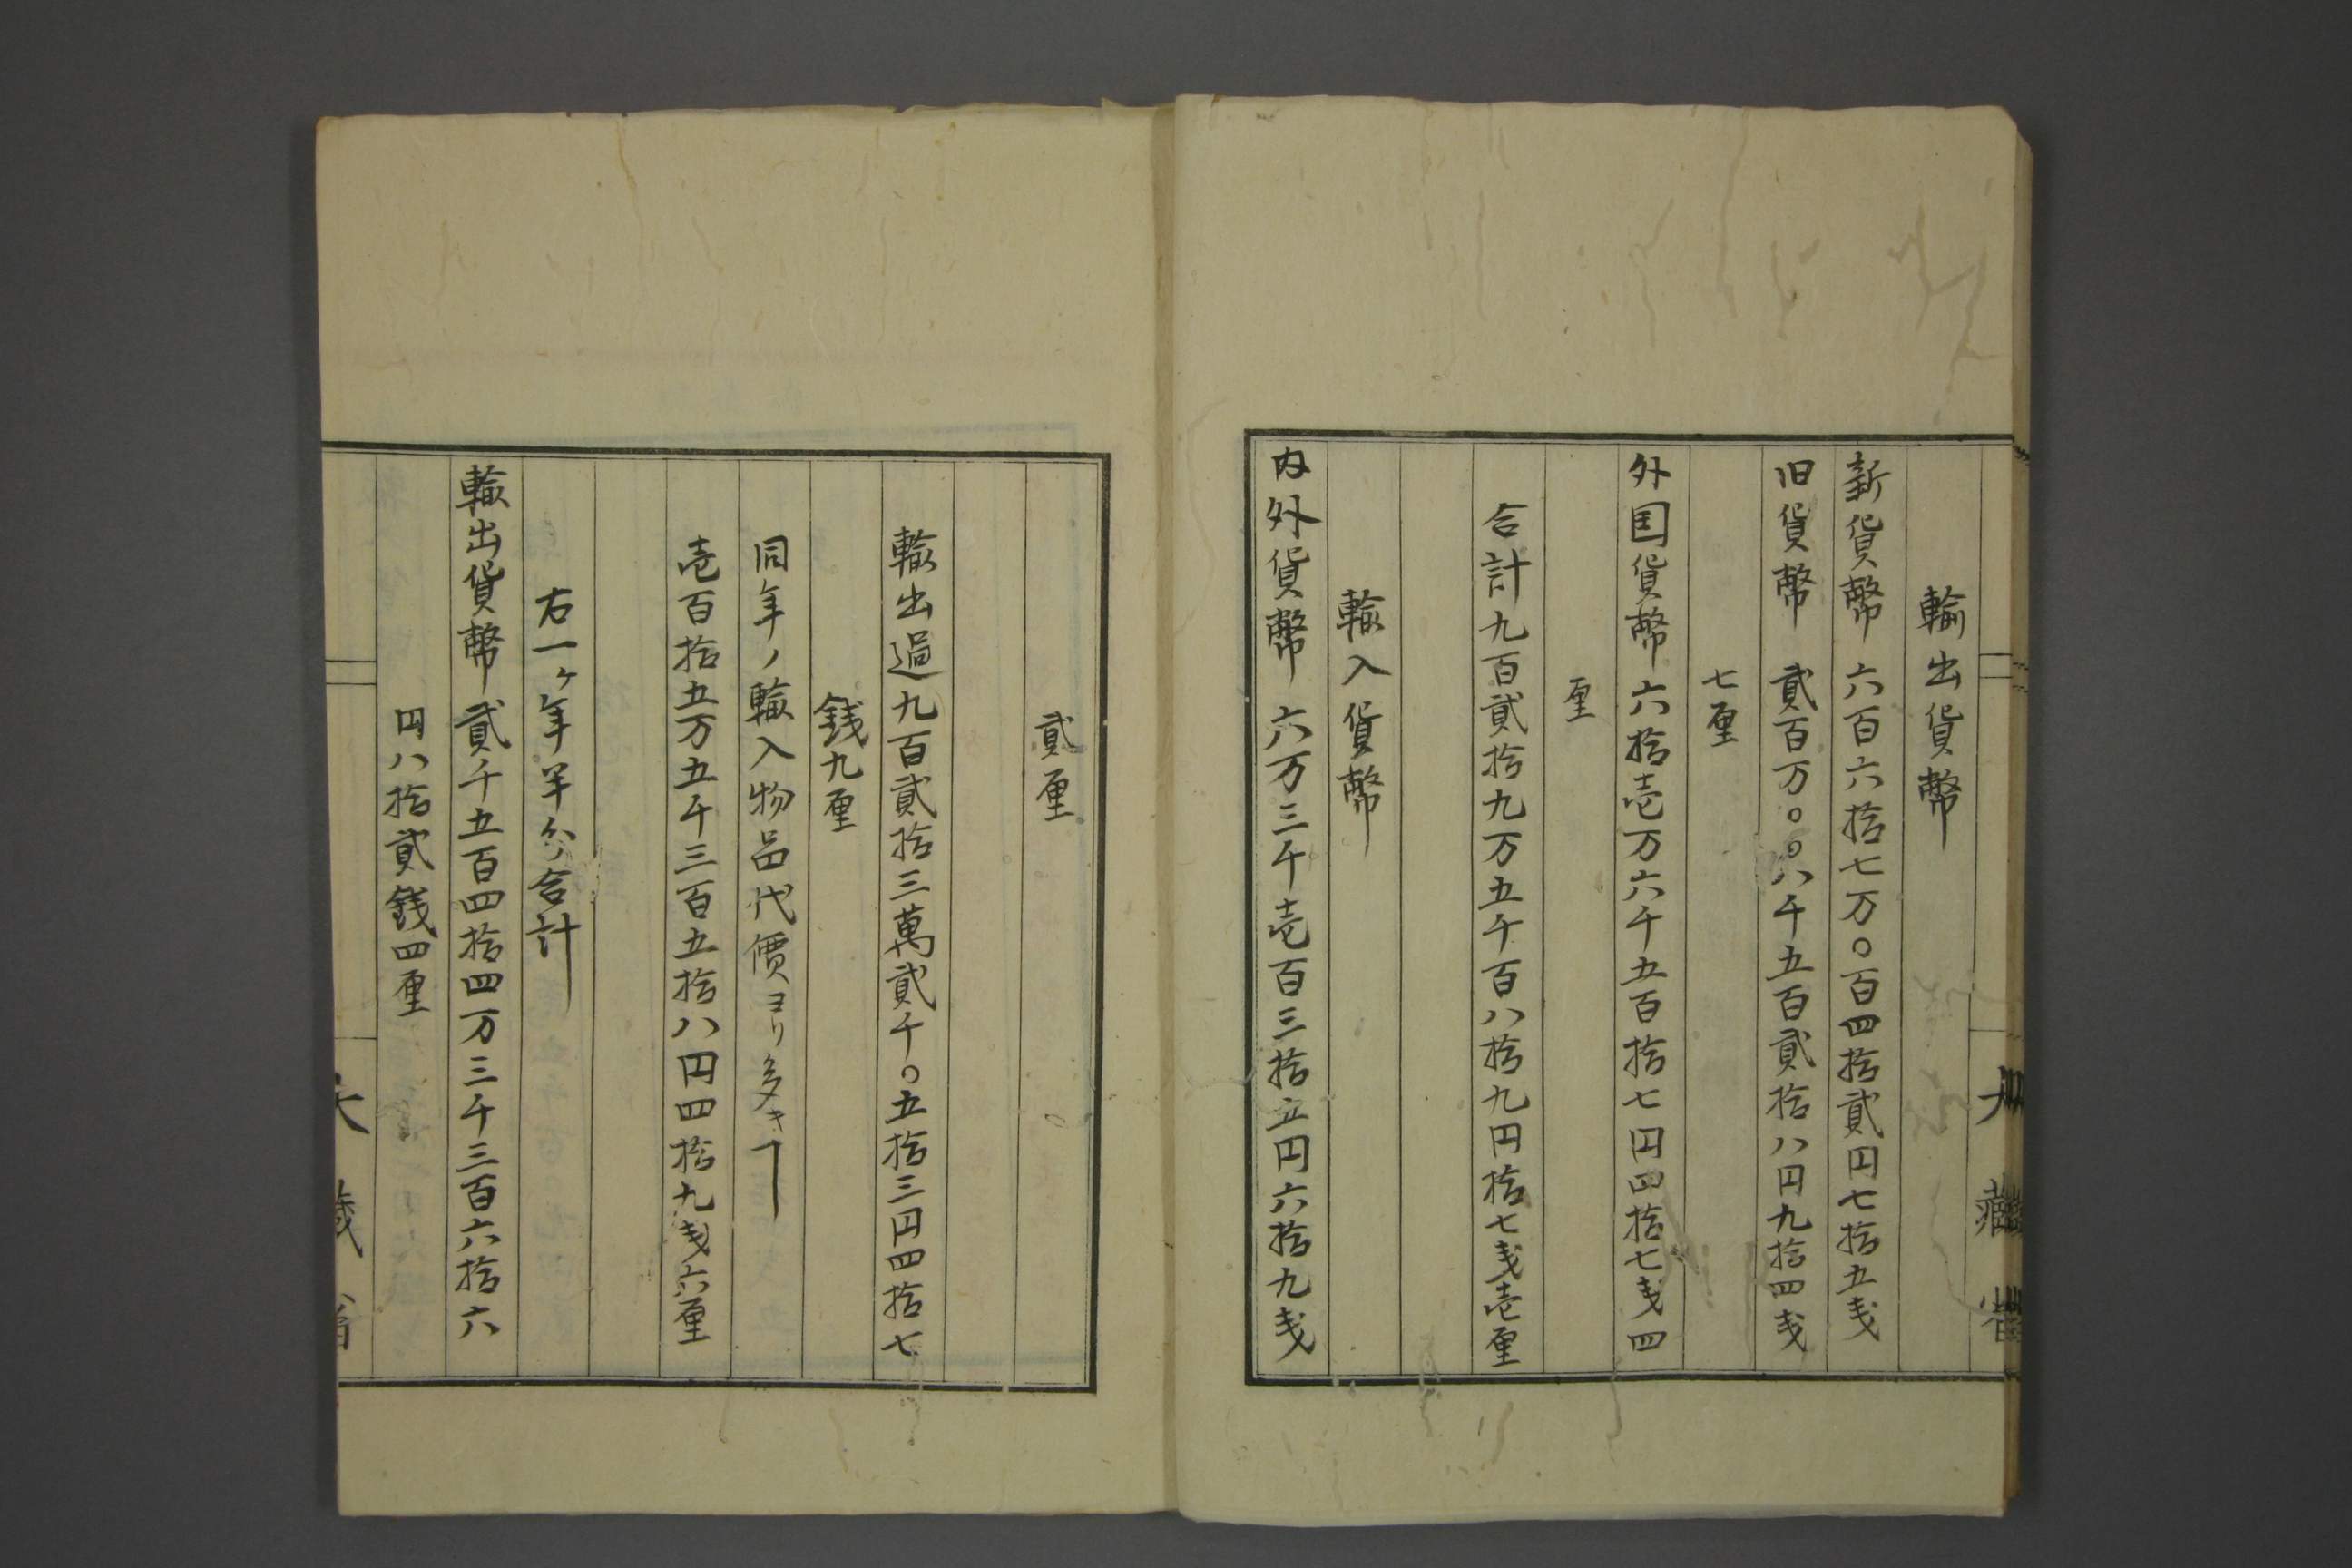 輸出貨幣
新貨幣 六百六拾七万〇百四拾貳円七拾五戋
旧貨幣 貳百万〇〇八千五百貳拾八円九拾四戋
七厘
外国貨幣 六拾壱万六千五百拾七円四拾七戋四
厘
合計九百貳拾九万五千百八拾九円拾七戋壱厘
輸入貨幣
内外貨幣 六万三千壱百三拾五円六拾九戋
大藏省
貳厘
輸出過九百貳拾三萬貳千〇五拾三円四拾七
銭九厘
同年ノ輸入物品代價ヨリ多キヿ
壱百拾五万五千三百五拾八円四拾九戋六厘
右一ヶ年半分合計
輸出貨幣 貳千五百四拾四万三千三百六拾六
円八拾貳銭四厘
大藏省